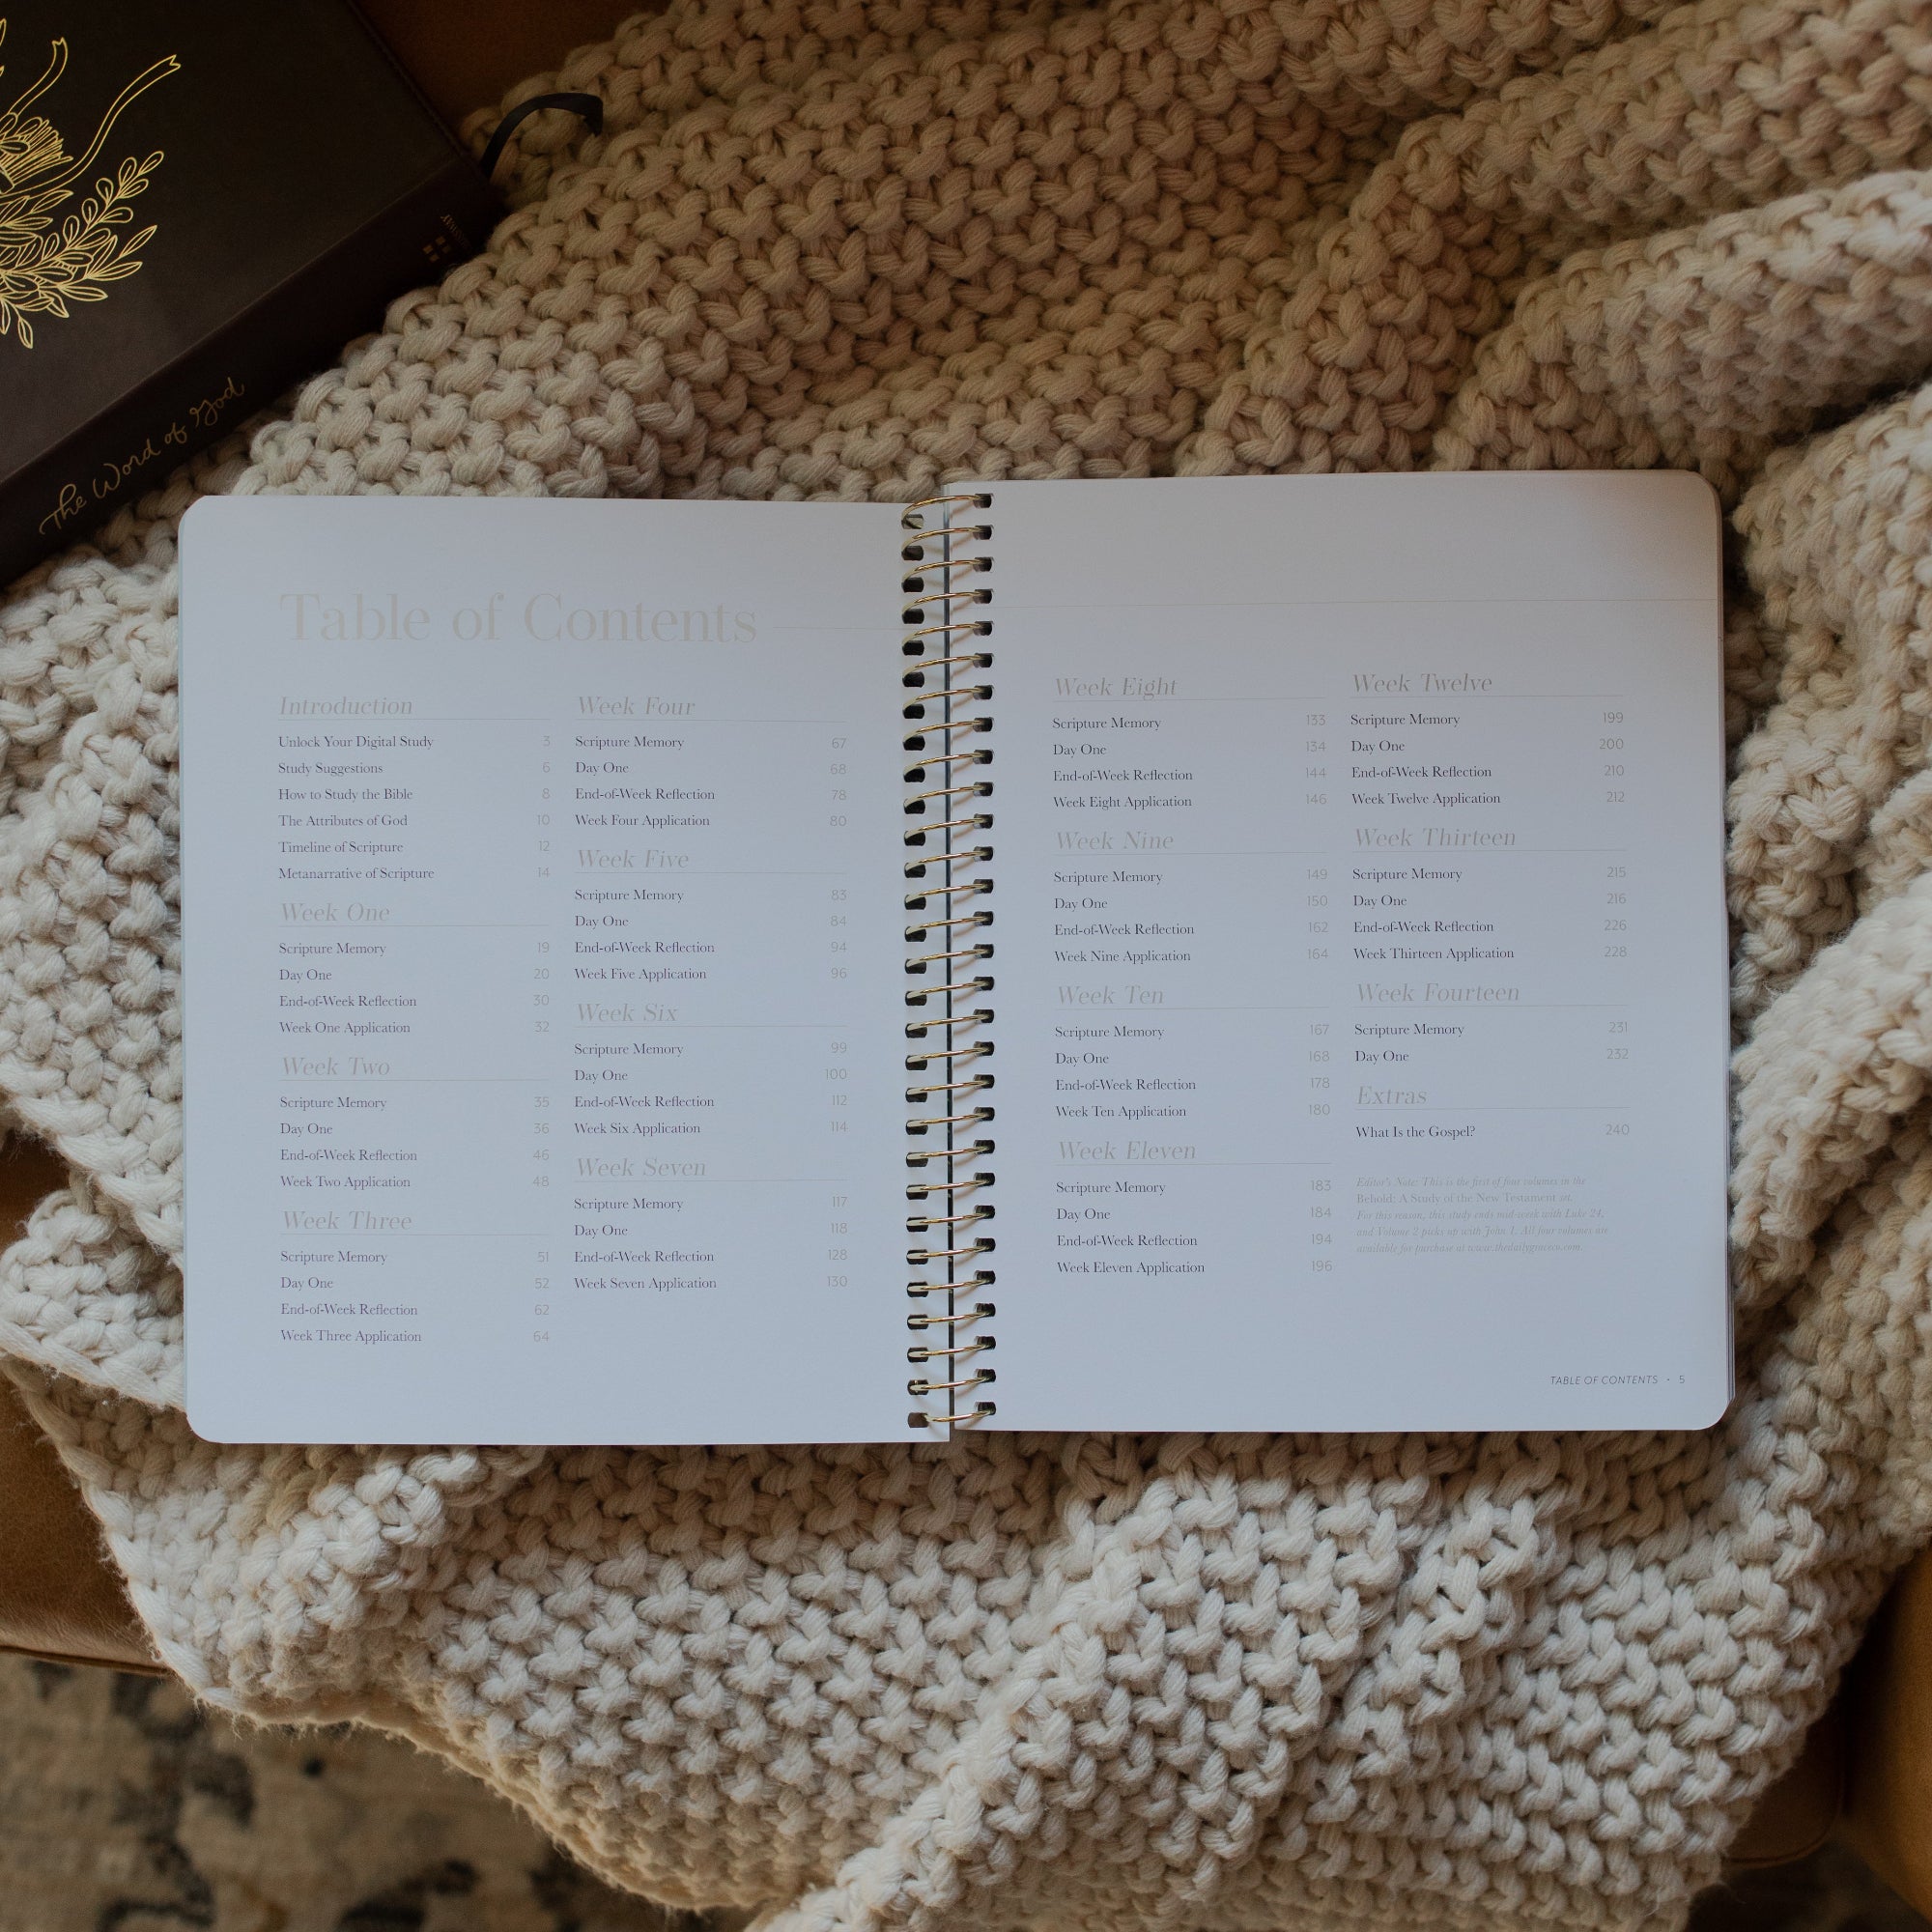 The Word of God
Table of Contents
Introduction
Unlock Your Digital Study 3
Study Suggestions 6
How to Study the Bible 8
The Attributes of God 10
Timeline of Scripture 12
Metanarrative of Scripture 14
Week One
Scripture Memory 19
Day One 20
End-of-Week Reflection 30
Week One Application 32
Week Two
Scripture Memory 35
Day One 36
End-of-Week Reflection 46
Week Two Application 48
Week Three
Scripture Memory 51
Day One 52
End-of-Week Reflection 62
Week Three Application 64
Week Four
Scripture Memory 67
Day One 68
End-of-Week Reflection 78
Week Four Application 80
Week Five
Scripture Memory 83
Day One 84
End-of-Week Reflection 94
Week Five Application 96
Week Six
Scripture Memory 99
Day One 100
End-of-Week Reflection 112
Week Six Application 114
Week Seven
Scripture Memory 117
Day One 118
End-of-Week Reflection 128
Week Seven Application 130
Week Eight
Scripture Memory 133
Day One 134
End-of-Week Reflection 144
Week Eight Application 146
Week Nine
Scripture Memory 149
Day One 150
End-of-Week Reflection 162
Week Nine Application 164
Week Ten
Scripture Memory 167
Day One 168
End-of-Week Reflection 178
Week Ten Application 180
Week Eleven
Scripture Memory 183
Day One 184
End-of-Week Reflection 194
Week Eleven Application 196
Week Twelve
Scripture Memory 199
Day One 200
End-of-Week Reflection 210
Week Twelve Application 212
Week Thirteen
Scripture Memory 215
Day One 216
End-of-Week Reflection 226
Week Thirteen Application 228
Week Fourteen
Scripture Memory 231
Day One 232
Extras
What Is the Gospel? 240
Editor's Note: This is the first of four volumes in the
Behold: A Study of the New Testament
For this reason, this study ends mid-week with Luke 24,
and Volume 2 picks up with John 1. All four volumes are
available for purchase at www.thedailygraceco.com.
TABLE OF CONTENTS • 5